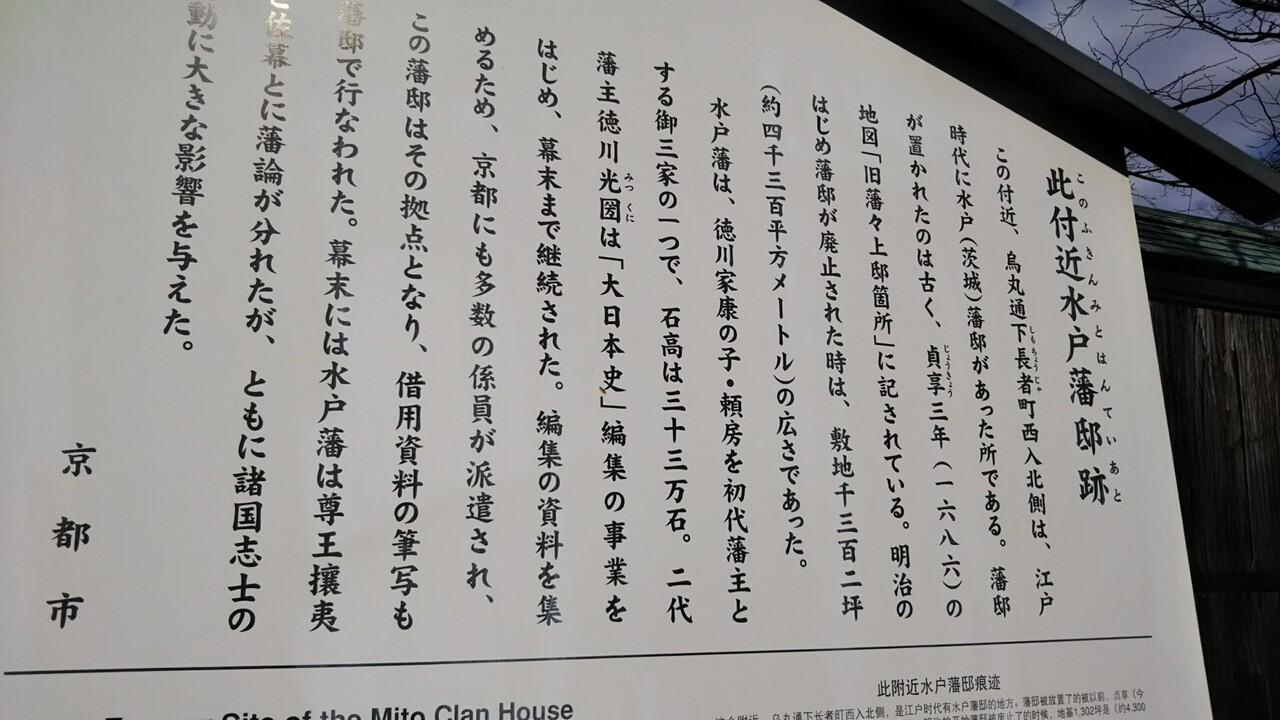 此付近水戸藩邸跡
このふきんみとはんていあと
この付近、烏丸通下長者町西入北側は、江戸
しもちょうじゃ
時代に水戸(茨城)藩邸があった所である。藩邸
が置かれたのは古く、貞享三年(一六八六)の
じょうきょう
地図「旧藩々上邸箇所」に記されている。明治の
はじめ藩邸が廃止された時は、敷地千三百二坪
(約四千三百平方メートル)の広さであった。
水戸藩は、徳川家康の子・頼房を初代藩主と
する御三家の一つで、石高は三十三万石。二代
藩主徳川光圀は「大日本史」編集の事業を
みつくに
はじめ、幕末まで継続された。編集の資料を集
めるため、京都にも多数の係員が派遣され、
この藩邸はその拠点となり、借用資料の筆写も
藩邸で行なわれた。幕末には水戸藩は尊王攘夷
と佐幕とに藩論が分れたが、ともに諸国志士の
動に大きな影響を与えた。
京都市
Site of the Mito Clan House
此附近水户藩邸痕迹
乌丸通下长者町西入北側，是江户时代有水户藩邸的地方。藩邸被放置了的被以前，贞享（今
被废止了的时候，地基1,302坪是（约4,300